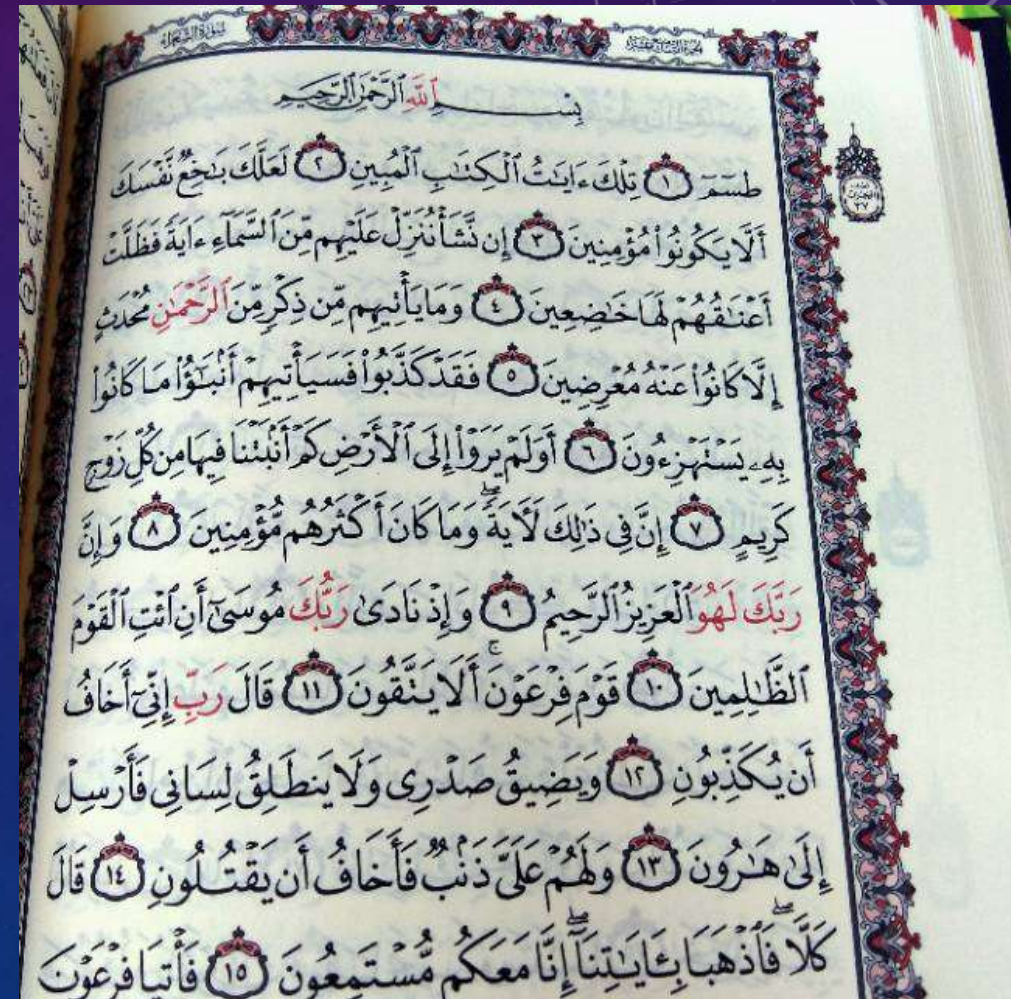 سورة الشعراء الجزء التاسع عشر
بِسْمِ ٱللَّهِ ٱلرَّحْمَٰنِ ٱلرَّحِيمِ
طسٓمٓ ١ تِلْكَ ءَايَٰتُ ٱلْكِتَٰبِ ٱلْمُبِينِ ٢ لَعَلَّكَ بَٰخِعٌ نَّفْسَكَ
أَلَّا يَكُونُوا۟ مُؤْمِنِينَ ٣ إِن نَّشَأْ نُنَزِّلْ عَلَيْهِم مِّنَ ٱلسَّمَآءِ ءَايَةً فَظَلَّتْ
أَعْنَٰقُهُمْ لَهَا خَٰضِعِينَ ٤ وَمَا يَأْتِيهِم مِّن ذِكْرٍ مِّنَ ٱلرَّحْمَٰنِ مُحْدَثٍ
إِلَّا كَانُوا۟ عَنْهُ مُعْرِضِينَ ٥ فَقَدْ كَذَّبُوا۟ فَسَيَأْتِيهِمْ أَنۢبَٰٓؤُا۟ مَا كَانُوا۟
بِهِۦ يَسْتَهْزِءُونَ ٦ أَوَلَمْ يَرَوْا۟ إِلَى ٱلْأَرْضِ كَمْ أَنۢبَتْنَا فِيهَا مِن كُلِّ زَوْجٍ
كَرِيمٍ ٧ إِنَّ فِى ذَٰلِكَ لَءَايَةً ۖ وَمَا كَانَ أَكْثَرُهُم مُّؤْمِنِينَ ٨ وَإِنَّ
رَبَّكَ لَهُوَ ٱلْعَزِيزُ ٱلرَّحِيمُ ٩ وَإِذْ نَادَىٰ رَبُّكَ مُوسَىٰٓ أَنِ ٱئْتِ ٱلْقَوْمَ
ٱلظَّٰلِمِينَ ١٠ قَوْمَ فِرْعَوْنَ ۚ أَلَا يَتَّقُونَ ١١ قَالَ رَبِّ إِنِّىٓ أَخَافُ
أَن يُكَذِّبُونِ ١٢ وَيَضِيقُ صَدْرِى وَلَا يَنطَلِقُ لِسَانِى فَأَرْسِلْ
إِلَىٰ هَٰرُونَ ١٣ وَلَهُمْ عَلَىَّ ذَنۢبٌ فَأَخَافُ أَن يَقْتُلُونِ ١٤ قَالَ
كَلَّا ۖ فَٱذْهَبَا بِـَٔايَٰتِنَآ ۖ إِنَّا مَعَكُم مُّسْتَمِعُونَ ١٥ فَأْتِيَا فِرْعَوْنَ